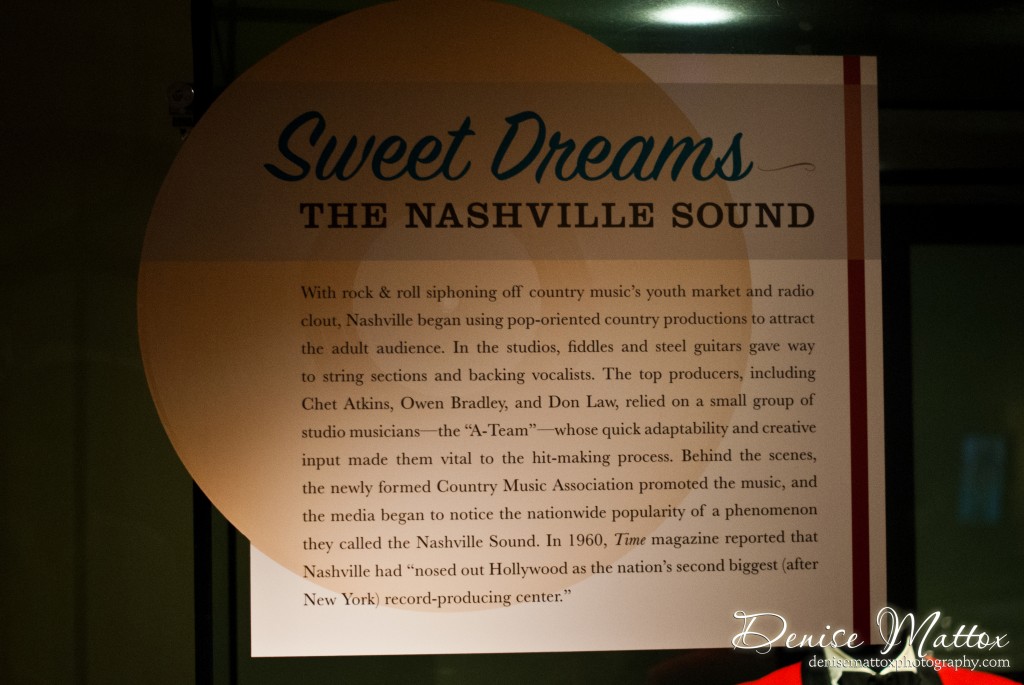 Sweet Dreams
THE NASHVILLE SOUND
With rock & roll siphoning off country music's youth market and radio
clout, Nashville began using pop-oriented country productions to attract
the adult audience. In the studios, fiddles and steel guitars gave way
to string sections and backing vocalists. The top producers, including
Chet Atkins, Owen Bradley, and Don Law, relied on a small group of
studio musicians—the “A-Team”—whose quick adaptability and creative
input made them vital to the hit-making process. Behind the scenes,
the newly formed Country Music Association promoted the music, and
the media began to notice the nationwide popularity of a phenomenon
they called the Nashville Sound. In 1960, Time magazine reported that
Nashville had “nosed out Hollywood as the nation's second biggest (after
New York) record-producing center.”
Denise Mattox
denisemattoxphotography.com